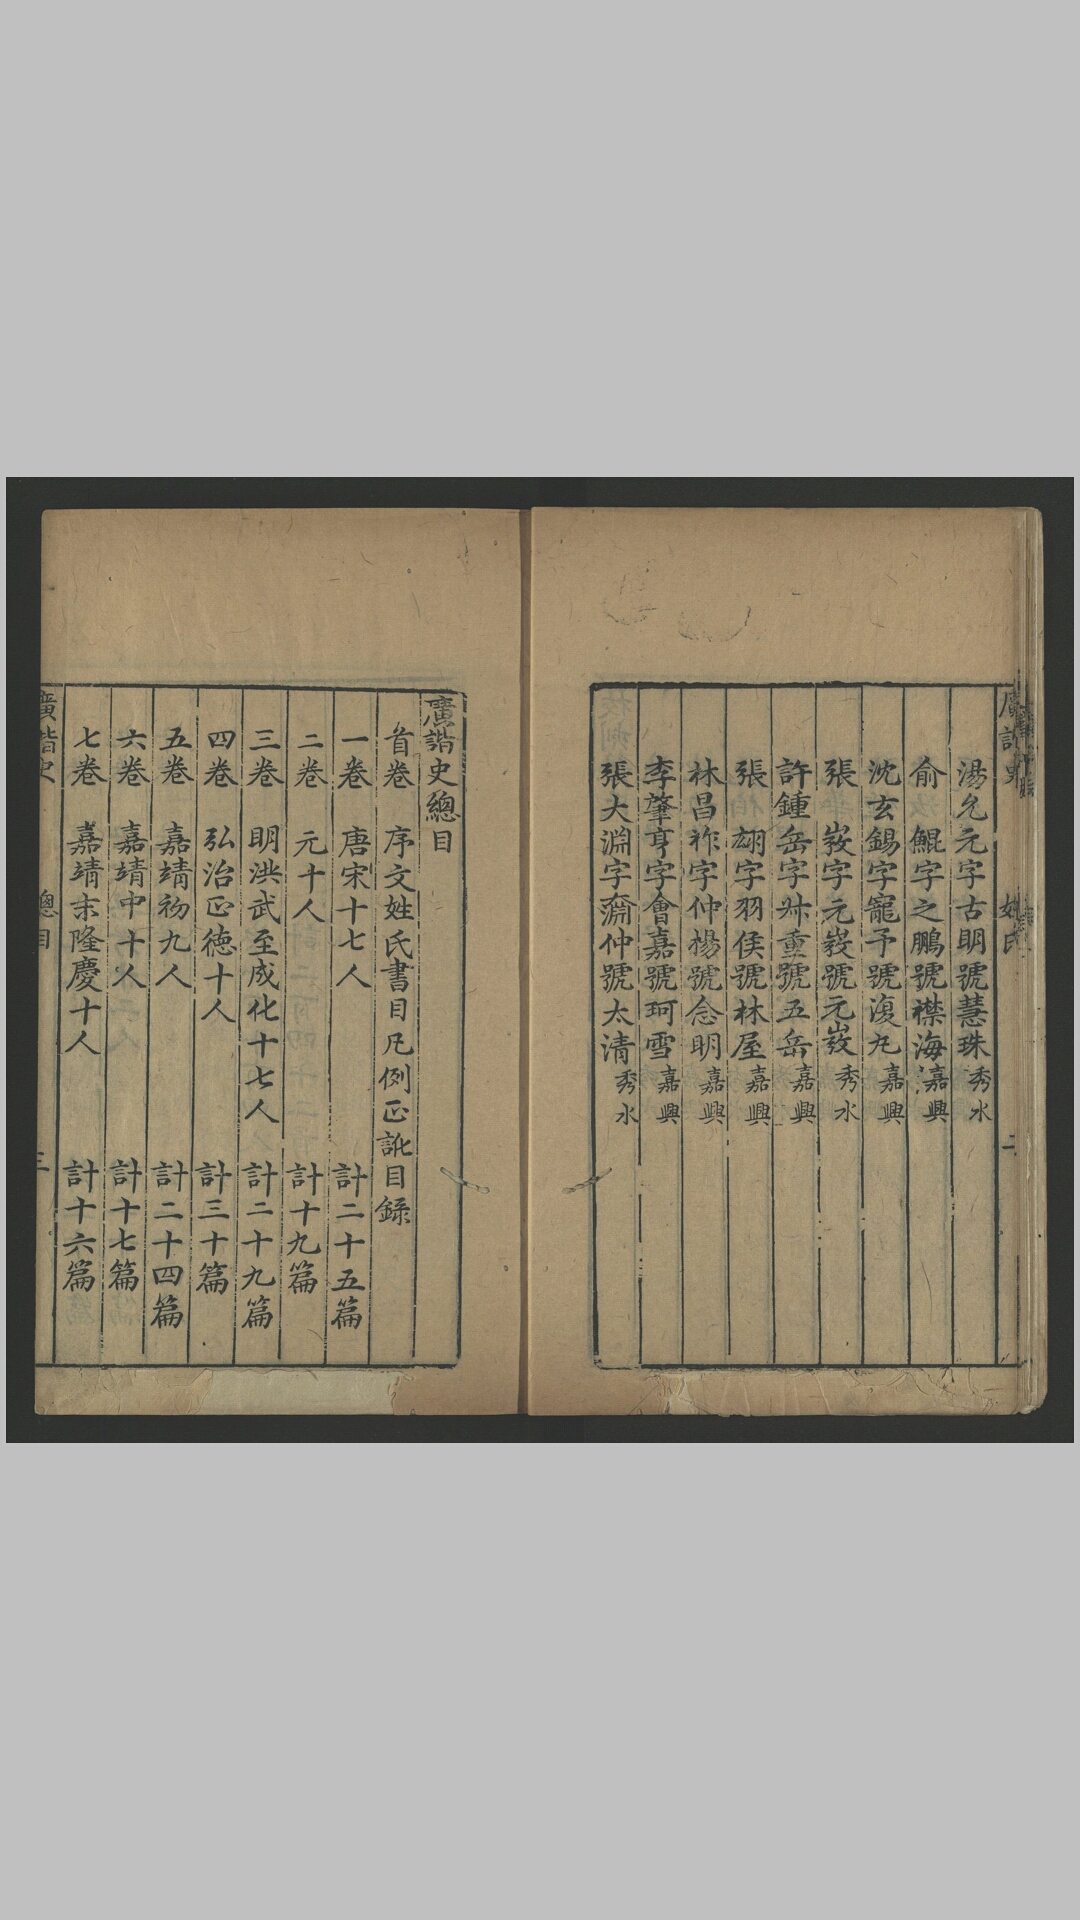 湯允元字古明號慧珠秀水
俞鯤字之鵬號襟海嘉興
沈玄錫字寵予號澓允嘉興
張 字元 號元 秀水
許鍾岳字 重號五岳嘉興
張翃字羽侯號林屋嘉興
林昌祚字仲楊號念明嘉興
李肇亨字會嘉號珂雪嘉興
張大淵字 仲號太清秀水
廣諧史
姓氏
二
廣諧史總目
首卷 序文姓氏書目凡例正訛目錄
一卷 唐宋十七人 計二十五篇
二卷 元十人 計十九篇
三卷 明洪武至成化十七人 計二十九篇
四卷 弘治正德十人 計三十篇
五卷 嘉靖初九人 計二十四篇
六卷 嘉靖中十人 計十七篇
七卷 嘉靖末隆慶十人 計十六篇
廣諧史
總目
三